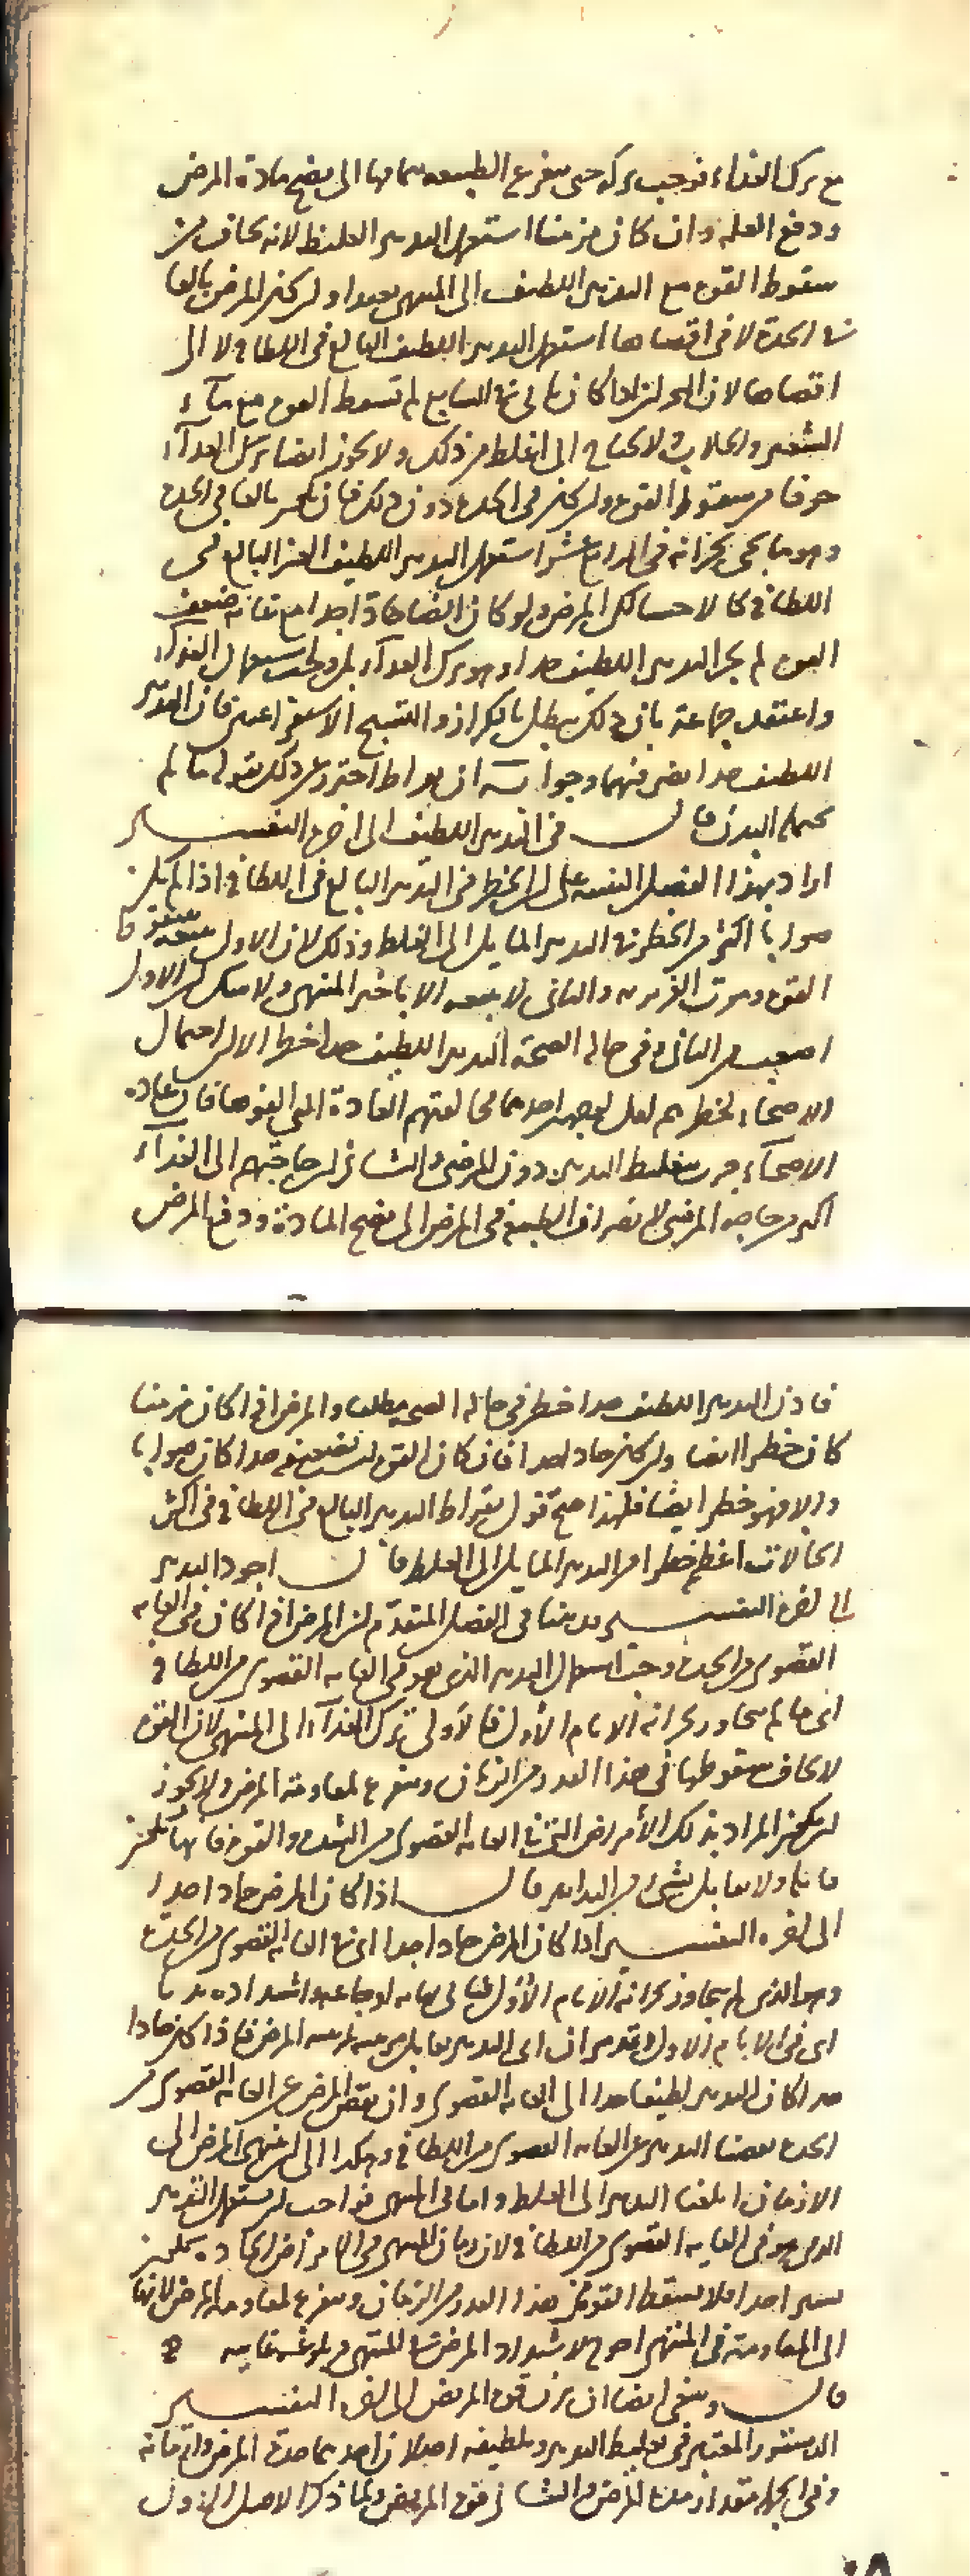 مع ترك الغذاء فوجب تركه حتى يتفرغ الطبيعة بتمامها الى نضج مادة المرض
ودفع العلة وان كان مزمنا استعمل التدبير الغليظ لانه يخاف من
سقوط القوة مع التدبير اللطيف الى المنتهى وان لم يكن المرض بالغا
في الحدة لا في اقصاها استعمل التدبير اللطيف البالغ في اللطافة لا الى
اقصاها لان البحران اذا كان يأتي في السابع لم تسقط القوة مع ماء
الشعير والجلاب ولا يحتاج الى اغلظ من ذلك ولا يجوز ايضا ترك الغذاء
خوفا من سقوط القوة وان كان في الحدة دون ذلك فان لم يكن بالغا في الحدة
وهو ما يجي بحرانه في الرابع عشر استعمل التدبير اللطيف الغير البالغ في
اللطافة كالاحساء لكن المرض لو كان ايضا حادا جدا مع ضعف
القوة لم يجز التدبير اللطيف جدا وهو ترك الغذاء بل وجب استعمال الغذاء
واعتقد جماعة بان ذلك يبطل بالكزاز والتشنج الاستفراغي فان التدبير
اللطيف جدا يضر فيهما وجوابه ان بقراط احترز عن ذلك بقوله ما لم
يحتمله البدن قال في التدبير اللطيف الى اخره التفسير
اراد بهذا الفصل التنبيه على ان الخطر في التدبير البالغ في اللطافة اذا لم يكن
صوابا اكثر من الخطر في التدبير المايل الى الغلظ وذلك لان الاول يتبعه سقوط
القوة وموت الغريزية والثاني لا يتبعه الا تأخير المنتهى ولا شك ان الاول
اصعب من الثاني وفي حالة الصحة التدبير اللطيف جدا خطر لان احتمال
الاصحاء لخطرهم اقل لوجهين احدهما مخالفتهم العادة التي الفوها فان عادة
الاصحاء جرت بتغليظ التدبير دون المرضى والثاني ان حاجتهم الى الغذاء
اكثر من حاجة المرضى لانصراف الطبيعة في المرض الى نضج المادة ودفع المرض
فاذن التدبير اللطيف جدا خطر في حالة الصحة مطلقا والمرض اذا كان مزمنا
كان خطرا ايضا وان كان حادا جدا فان كان القوة ليست بضعيفة جدا كان صوابا
والا فهو خطر ايضا فلهذا صح قول بقراط التدبير البالغ في اللطافة في اكثر
الحالات اعظم خطرا من التدبير المايل الى الغلظ قال اجود التدبير
الى اخره التفسير قد بينا في الفصل المتقدم ان المرض اذا كان في الغاية
القصوى من الحدة وجب استعمال التدبير الذي هو في الغاية القصوى من اللطافة
اي ما لم يتجاوز بحرانه الايام الاول فالاولى ترك الغذاء الى المنتهى لان القوة
لا يخاف سقوطها في هذا القدر من الزمان ويتفرغ لمقاومة المرض ولا يجوز
ان يكون المراد بذلك الامراض التي في الغاية القصوى من الشدة والقوة فانها تكون
قاتلة ولا تقابل بشيء من التدابير قال اذا كان المرض حادا جدا
الى اخره التفسير اذا كان المرض حادا جدا اي في الغاية القصوى من الحدة
وهو الذي لم يتجاوز بحرانه الايام الاول فتأتي نهاية اوجاعه واشتداده بديا
اي في الايام الاول وتقدم ان اي التدبير يقابل مرتبته مرتبة المرض فاذا كان حادا
جدا كان التدبير لطيفا جدا الى الغاية القصوى وان نقص المرض عن الغاية القصوى من
الحدة نقصنا التدبير عن الغاية القصوى من اللطافة وهكذا الى ان ينتهي المرض الى
الازمان ابلغنا التدبير الى الغلظ واما في المنتهى فواجب ان يستعمل التدبير
الذي هو في الغاية القصوى من اللطافة لان زمان المنتهى في الامراض الحادة يكون
يسيرا جدا فلا تسقط القوة في هذا القدر من الزمان ويتفرغ لمقاومة المرض لانها
الى المقاومة في المنتهى احوج لاشتداد المرض في المنتهى وبلوغه غايته
قال وينبغي ايضا ان تزن قوة المريض الى اخره التفسير
الدستور المعتبر في تغليظ التدبير وتلطيفه اصلان احدهما حدة المرض وازمانه
وفي الجملة مقدار مدة المرض والثاني قوة المريض ولما ذكر الاصل الاول